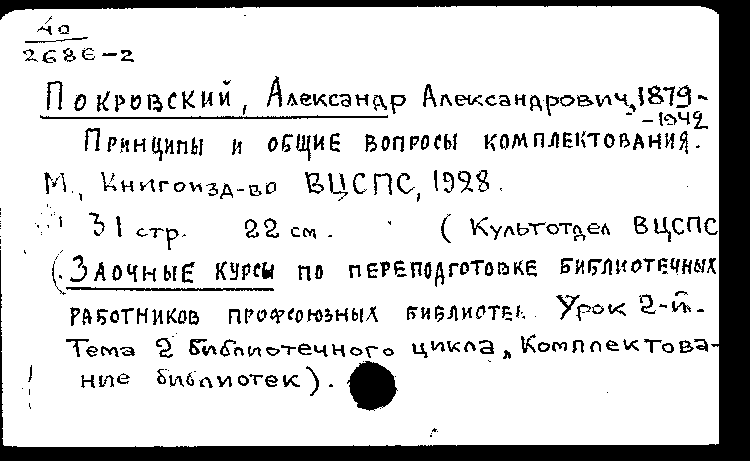 40
2686-2
Покровский, Александр Александрович, 1879-
-1942
Принципы и общие вопросы комплектования.
М., Книгоизд-во ВЦСПС, 1928.
31 стр. 22 см. (Культотдел ВЦСПС
(Заочные курсы по переподготовке библиотечных
работников профсоюзных библиотек. Урок 2-й.
Тема 2 библиотечного цикла „Комплектова-
ние библиотек).